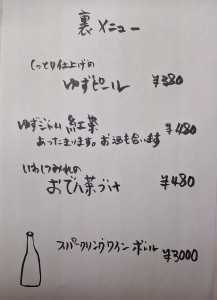 裏メニュー
しっとり仕上げの
ゆずピール ¥380
ゆずジャム 紅茶 ¥480
あったまります。お酒も合います
いわしつみれの
おでん茶づけ ¥480
スパークリングワイン ボトル ¥3000